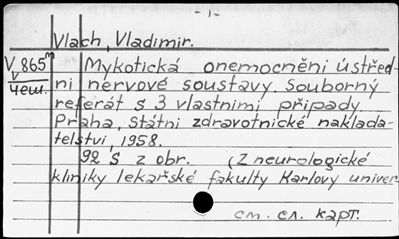 - 1 -
Vlach, Vladimir.
V 865 m Mykotická onemocněni ústřed-
v
чеш. ni nervové soustavy. Souborný
referát s 3 vlastnimi připady
Praha, Státni zdravotnické naklada-
telství, 1958.
92 S z obr. (Z neurologické
kliniky lekařské fakulty Karlovy univer
см. сл. карт.